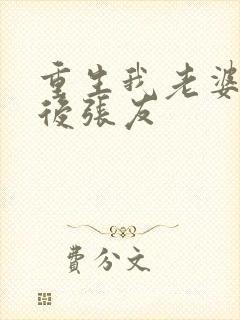 重生我老婆
後張友
費分文